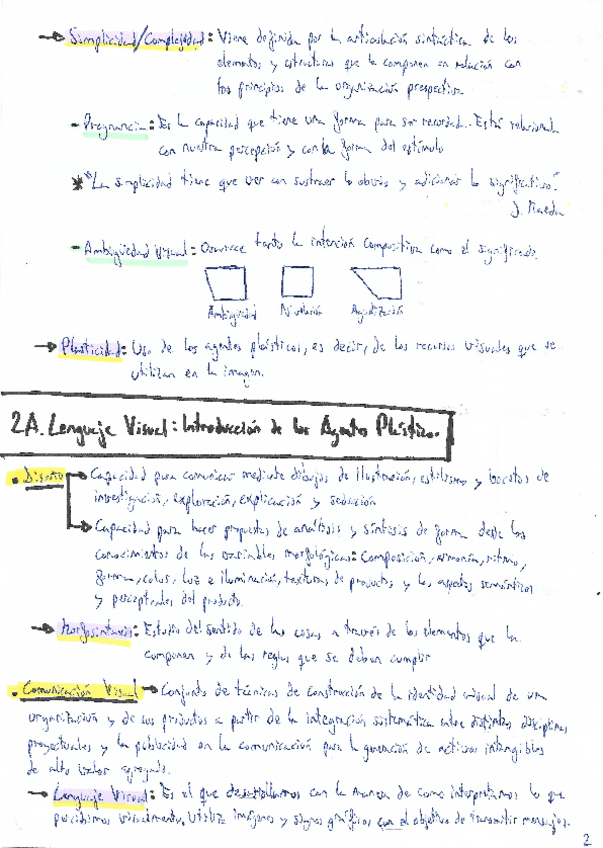 → Simplicidad/Complejidad: Viene definida por la articulación sintáctica de los
elementos y estructuras que la componen en relación con
los principios de la organización perspectiva.
- Pregnancia: Es la capacidad que tiene una forma para ser recordada. Está relacionada
con nuestra percepción y con la forma del estímulo
* "La simplicidad tiene que ver con sustraer lo obvio y adicionar lo significativo."
J. Maeda
- Ambigüedad Visual: Oscurece tanto la intención compositiva como el significado.
Ambigüedad Nivelación Agudización
→ Plasticidad: Uso de los agentes plásticos, es decir, de los recursos visuales que se
utilizan en la imagen.
2A. Lenguaje Visual: Introducción de los Agentes Plásticos.
• Diseño → Capacidad para comunicar mediante dibujos de ilustración, estilismo y bocetos de
investigación, exploración, explicación y seducción
→ Capacidad para hacer propuestas de análisis y síntesis de forma desde los
conocimientos de las variables morfológicas: Composición, armonía, ritmo,
forma, color, luz e iluminación, texturas de productos y los aspectos semánticos
y perceptuales del producto.
→ Morfosintaxis: Estudio del sentido de las cosas a través de los elementos que la
componen y de las reglas que se deben cumplir
• Comunicación Visual → Conjunto de técnicas de construcción de la identidad visual de una
organización y de sus productos a partir de la integración sistemática entre distintas disciplinas
proyectuales y la publicidad en la comunicación para la generación de activos intangibles
de alto valor agregado.
→ Lenguaje Visual: Es el que desarrollamos con la manera de como interpretamos lo que
percibimos visualmente. Utiliza imágenes y signos gráficos con el objetivo de transmitir mensajes.
2